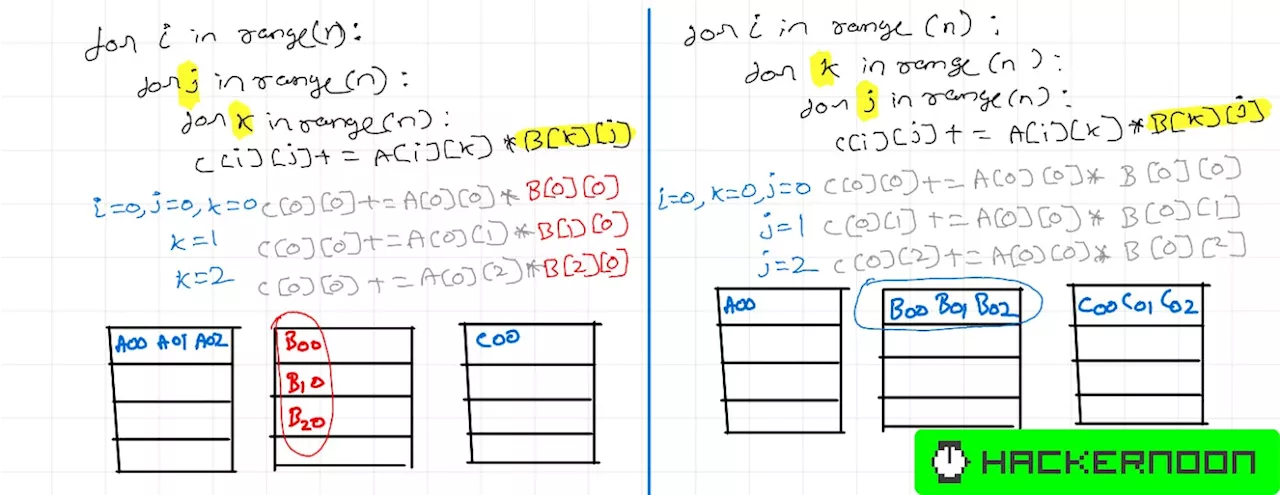 for i in range(n):
for j in range(n):
for k in range(n):
C[i][j]+ = A[i][k]*B[k][j]
i=0, j=0, k=0 C[0][0]+=A[0][0]* B[0][0]
k=1 C[0][0]+=A[0][1]*B[1][0]
k=2 C[0][0] += A[0][2]*B[2][0]
A00 A01 A02
B00
B10
B20
C00
for i in range (n) :
for k in range (n) :
for j in range (n) :
C[i][j]+ = A[i][k]*B[k][j]
i=0, k=0, j=0 C[0][0]+= A[0][0]* B[0][0]
j=1 C[0][1] += A[0][0]* B[0][1]
j=2 C[0][2] += A[0][0]* B[0][2]
A00
B00 B01 B02
C00 C01 C02
HACKERNOON